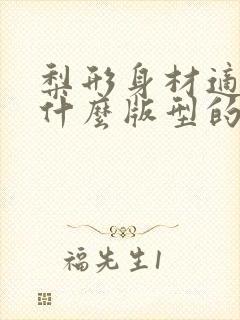 梨形身材適
什麼版型的
福先生1